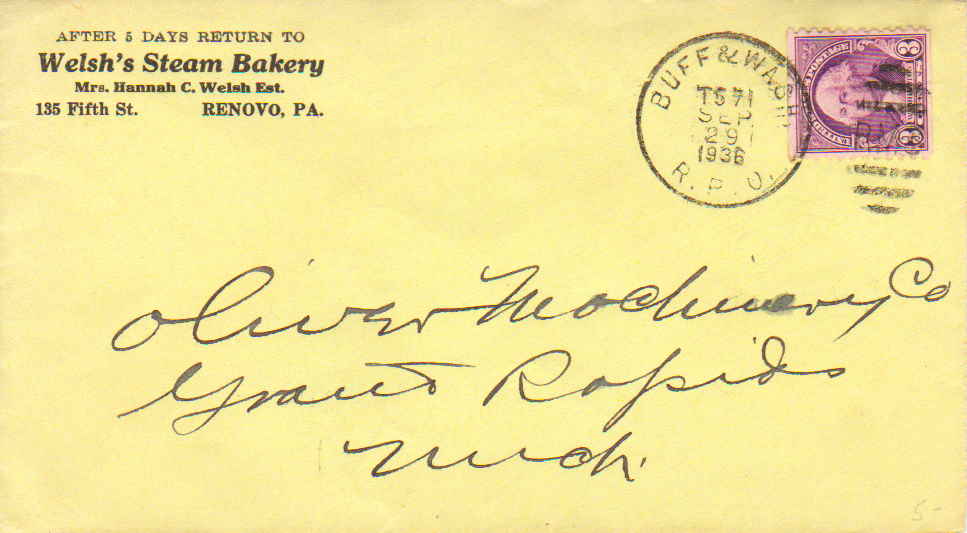 AFTER 5 DAYS RETURN TO
Welsh's Steam Bakery
Mrs. Hannah C. Welsh Est.
135 Fifth St. RENOVO, PA.
BUFF & WASH
TS 71
SEP
29
1936
R.P.O.
POSTAGE
3 3
Oliver Machinery Co
Grand Rapids
Mich.
5-